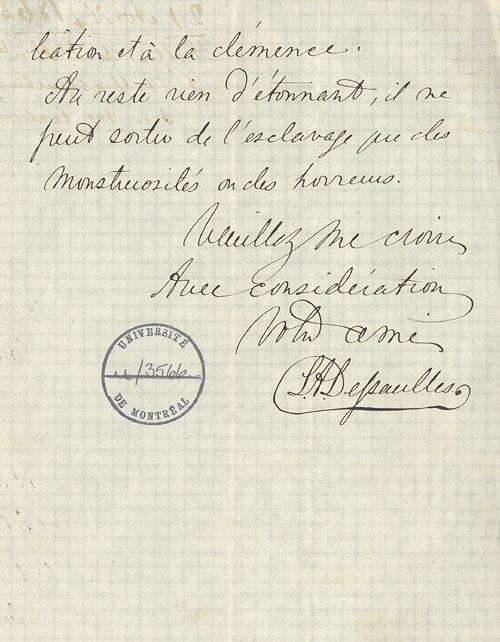 liation et à la clémence.
Au reste rien d'étonnant, il ne
peut sortir de l'esclavage que des
monstruosités ou des horreurs.
Veuillez me croire
Avec considération
Votre ami
L.A. Dessaulles
UNIVERSITÉ
u/3566
DE MONTRÉAL